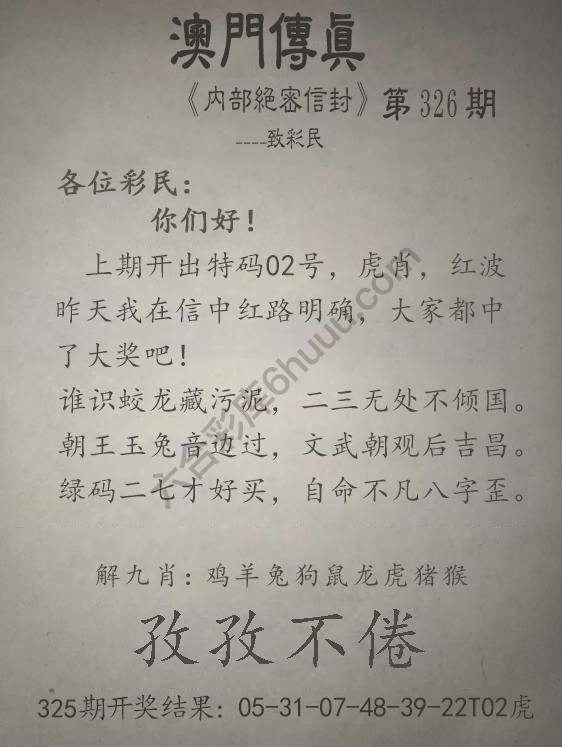 澳門傳眞
《内部絕密信封》第326期
----致彩民
各位彩民：
你们好！
上期开出特码02号，虎肖，红波
昨天我在信中红路明确，大家都中
了大奖吧！
谁识蛟龙藏污泥，二三无处不倾国。
朝王玉兔音边过，文武朝观后吉昌。
绿码二七才好买，自命不凡八字歪。
解九肖：鸡羊兔狗鼠龙虎猪猴
孜孜不倦
325期开奖结果：05-31-07-48-39-22T02虎
六合彩库6huuu.com